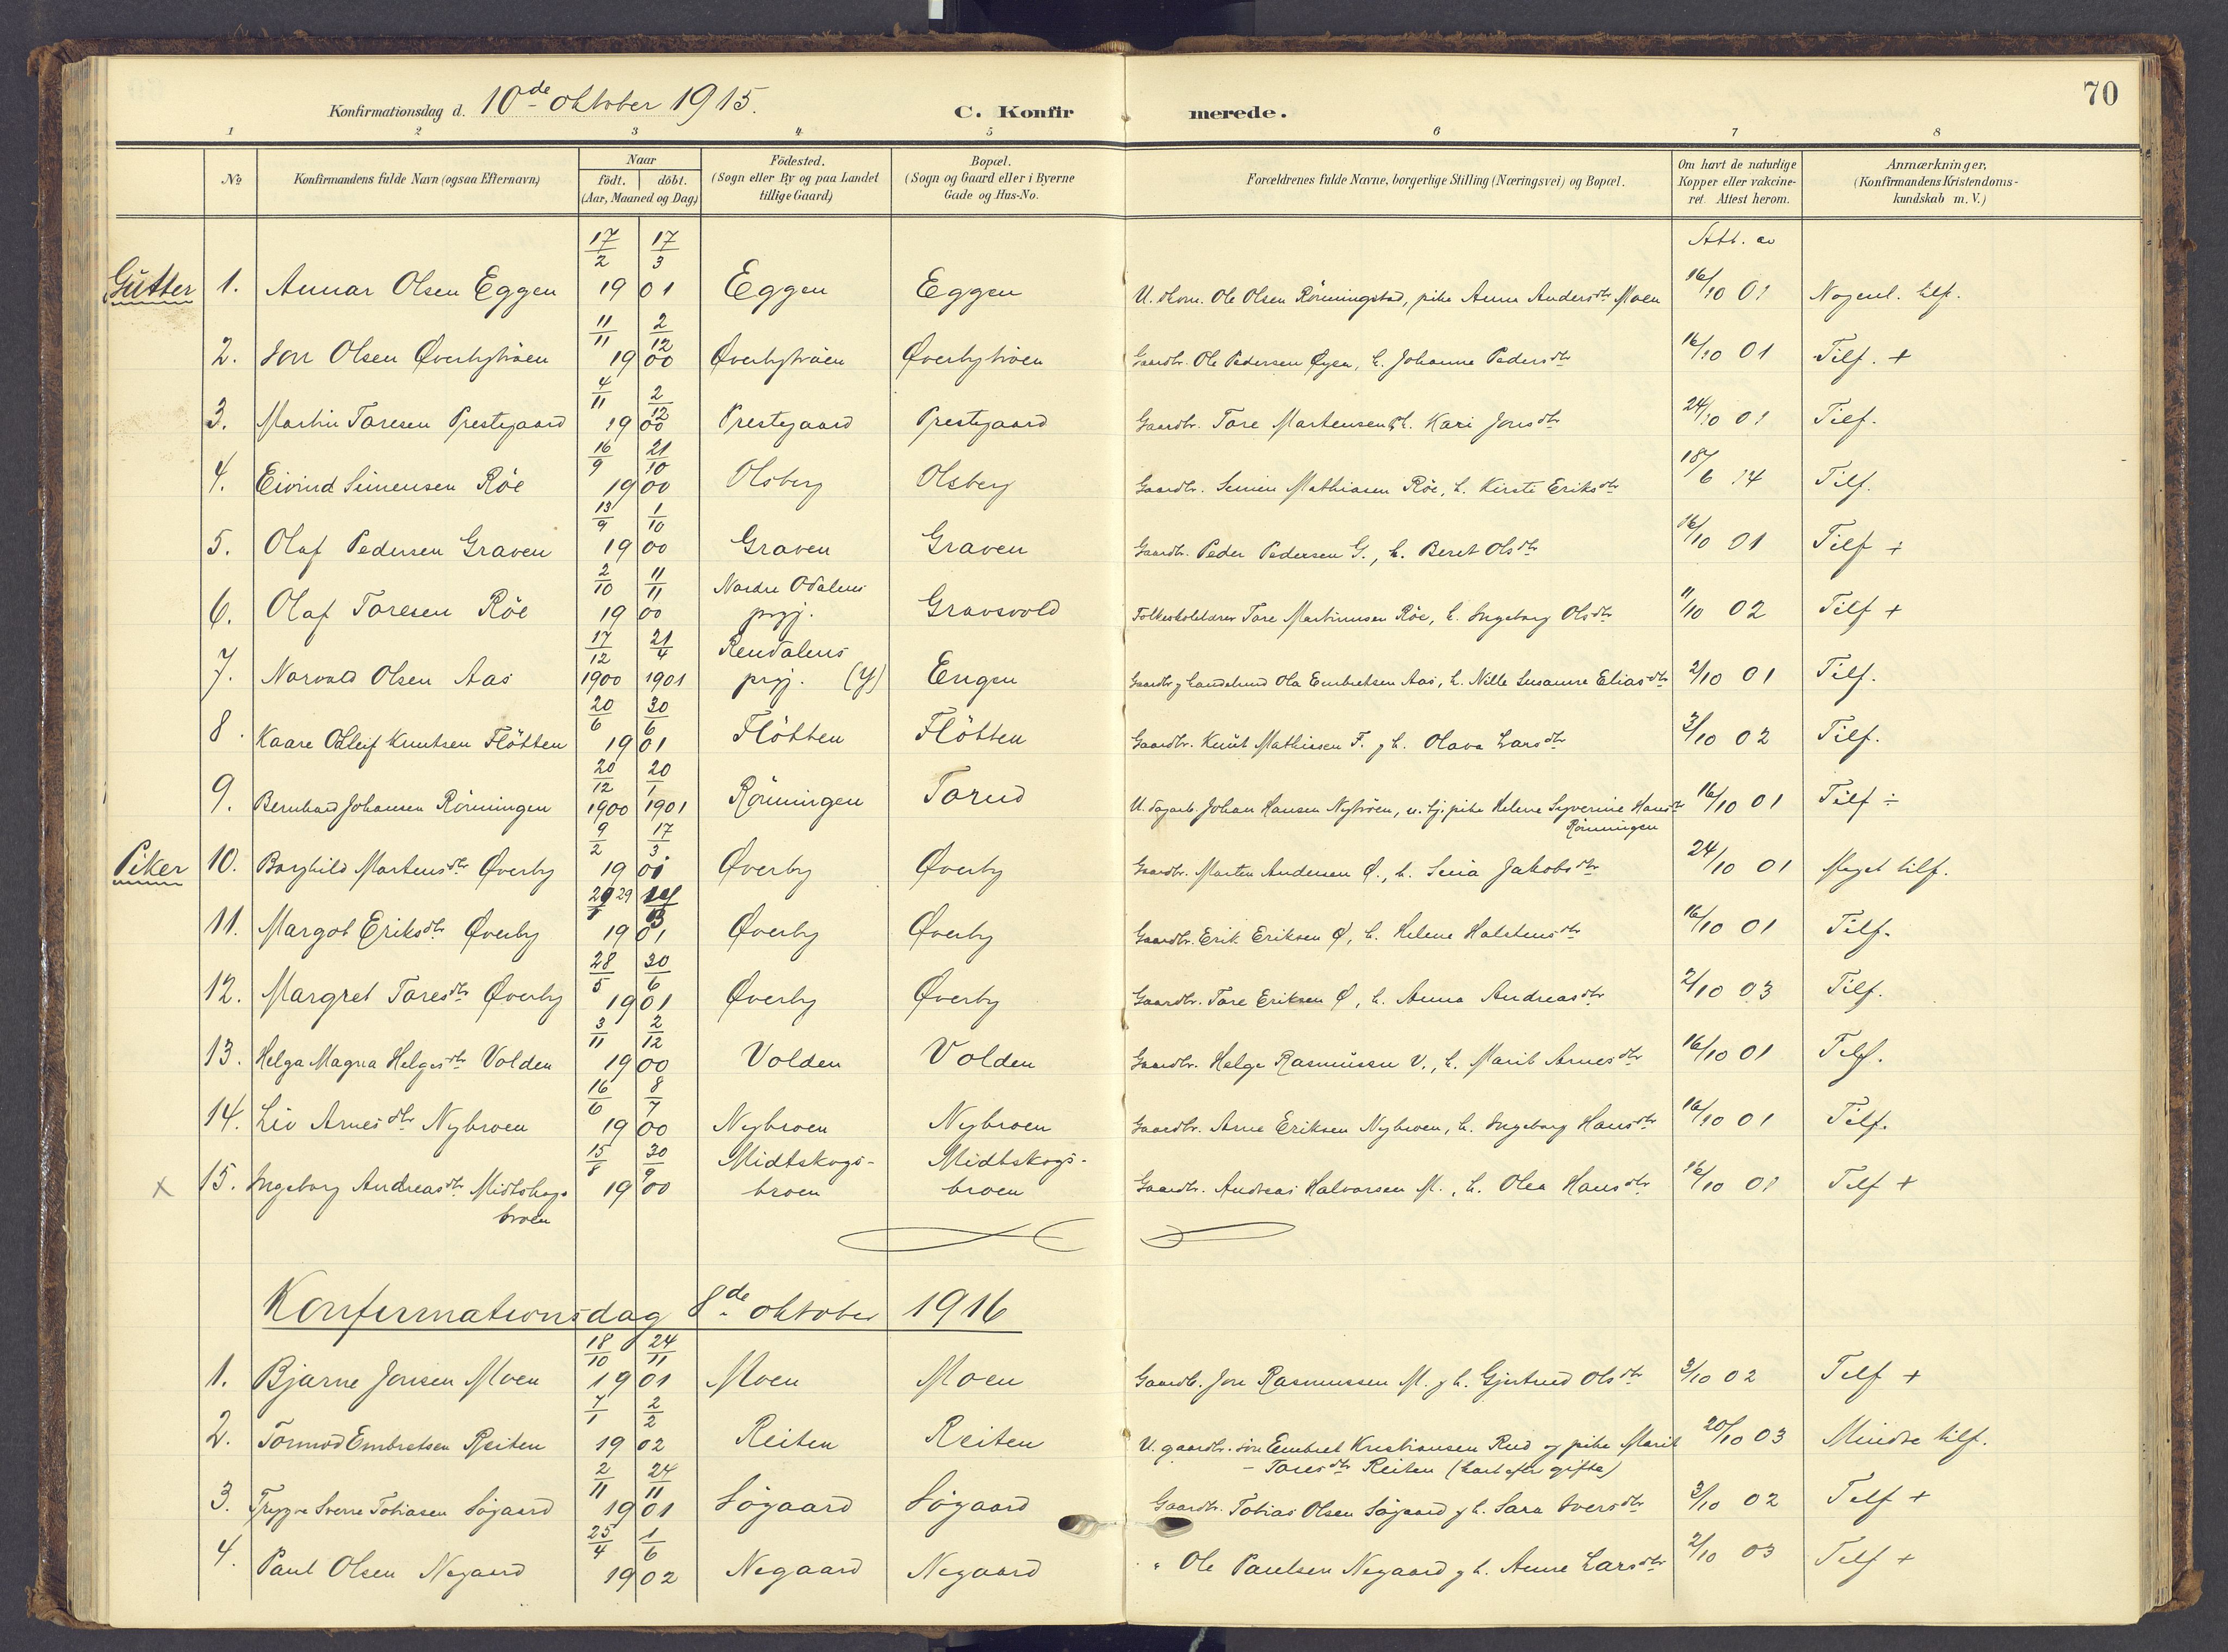 70
Konfirmationsdag d. 10de oktober 1915.
C. Konfirmerede.
1 2 3 4 5 6 7 8
No
Konfirmandens fulde Navn (ogsaa Efternavn)
Naar
födt. döbt.
(Aar, Maaned og Dag)
Födested.
(Sogn eller By og paa Landet
tillige Gaard)
Bopæl.
(Sogn og Gaard eller i Byerne
Gade og Hus-No.
Forældrenes fulde Navne, borgerlige Stilling (Næringsvei) og Bopæl.
Om havt de naturlige
Kopper eller vakcine-
ret. Attest herom.
Anmærkninger,
(Konfirmandens Kristendoms-
kundskab m. V.)
17/2 17/3 Att. av
Gutter 1. Annar Olsen Eggen 1901 Eggen Eggen Ole Olsen Rönningstad, pike Anna Andersdtr Moen 16/10 01 Nogenl. tilf.
11/11 2/12
2. Jon Olsen Øverbytröen 1900 Øverbytröen Øverbytröen Gaardbr. Ole Pedersen Øyen, h. Johanne Pedersdtr 16/10 01 Tilf. +
4/11 2/12
3. Martin Taresen Prestegaard 1900 Prestegaard Prestegaard Gaardbr. Tare Martensen h. Kari Jonsdtr 24/10 01 Tilf.
16/9 21/10
4. Eivind Simensen Röe 1900 Olsberg Olsberg Gaardbr. Simen Mathiasen Röe, h. Kirsti Eriksdtr 18/6 14 Tilf.
13/9 1/10
5. Olaf Pedersen Graven 1900 Graven Graven Gaardbr. Peder Pedersen G., h. Beret Olsdtr 16/10 01 Tilf +
2/10 11/11 Nordre Odalens
6. Olaf Taresen Röe 1900 prgj. Gravsvold Folkeskolelærer Tare Martinusen Röe, h. Ingeborg Olsdtr 11/10 02 Tilf +
17/12 21/4 Rendalens
7. Norvald Olsen Aas 1900 1901 prgj. (Y) Engen Gaardbr og Ola Embretsen Aas, h. Nille Susanne Eliasdtr 2/10 01 Tilf.
20/6 30/6
8. Kaare Odleif Knutsen Flötten 1901 Flötten Flötten Gaardbr. Knut Mathissen F. og h. Olava Larsdtr 3/10 02 Tilf.
20/12 20/1
9. Bernhard Johansen Rönningen 1900 1901 Rönningen Torud U. dagarb. Johan Hansen Nytröen, u. tj. pike Helene Syverine Hansdtr 16/10 01 Tilf ÷
Rönningen
9/2 17/3
Piker 10. Borghild Martensdtr Øverby 1901 Øverby Øverby Gaardbr. Marten Andersen Ø., h. Sina Jakobsdtr 24/10 01 Meget tilf.
29
11. Margot Eriksdtr Øverby 1901 Øverby Øverby Gaardbr. Erik Eriksen Ø, h. Helene Halstensdtr 16/10 01 Tilf.
28/5 30/6
12. Margret Taresdtr Øverby 1901 Øverby Øverby Gaardbr. Tare Eriksen Ø, h. Anna Andreasdtr 2/10 03 Tilf.
3/11 2/12
13. Helga Magna Helgesdtr Volden 1900 Volden Volden Gaardbr. Helge Rasmussen V., h. Marit Arnesdtr 16/10 01 Tilf.
16/6 8/7
14. Liv Arnesdtr Nybroen 1900 Nybroen Nybroen Gaardbr. Arne Eriksen Nybroen, h. Ingeborg Hansdtr 16/10 01 Tilf.
15/8 30/9 Midtskogs- Midtskogs-
x 15. Ingeborg Andreasdtr Midtskogs 1900 broen broen Gaardbr. Andreas Halvorsen M., h. Olea Hansdtr 16/10 01 Tilf +
broen
Konfirmationsdag 8de oktober 1916
18/10 24/11
1. Bjarne Jonsen Moen 1901 Moen Moen Gaardb. Jon Rasmussen M. og h. Gjertrud Olsdtr 3/10 02 Tilf +
7/1 2/2
2. Tormod Embretsen Reiten 1902 Reiten Reiten U. gaardbr. sön Embret Kristiansen Rud og pike Marit 20/10 03 Mindre tilf.
- Taresdtr Reiten (kort efter gifte)
2/11 24/11
3. Trygve Sverre Tobiasen Sögaard 1901 Sögaard Sögaard Gaardbr. Tobias Olsen Sögaard og h. Sara Iversdtr 3/10 02 Tilf +
25/4 1/6
4. Paul Olsen Negaard 1902 Negaard Negaard " Ole Paulsen Negaard og h. Anne Larsdtr 2/10 03 Tilf +